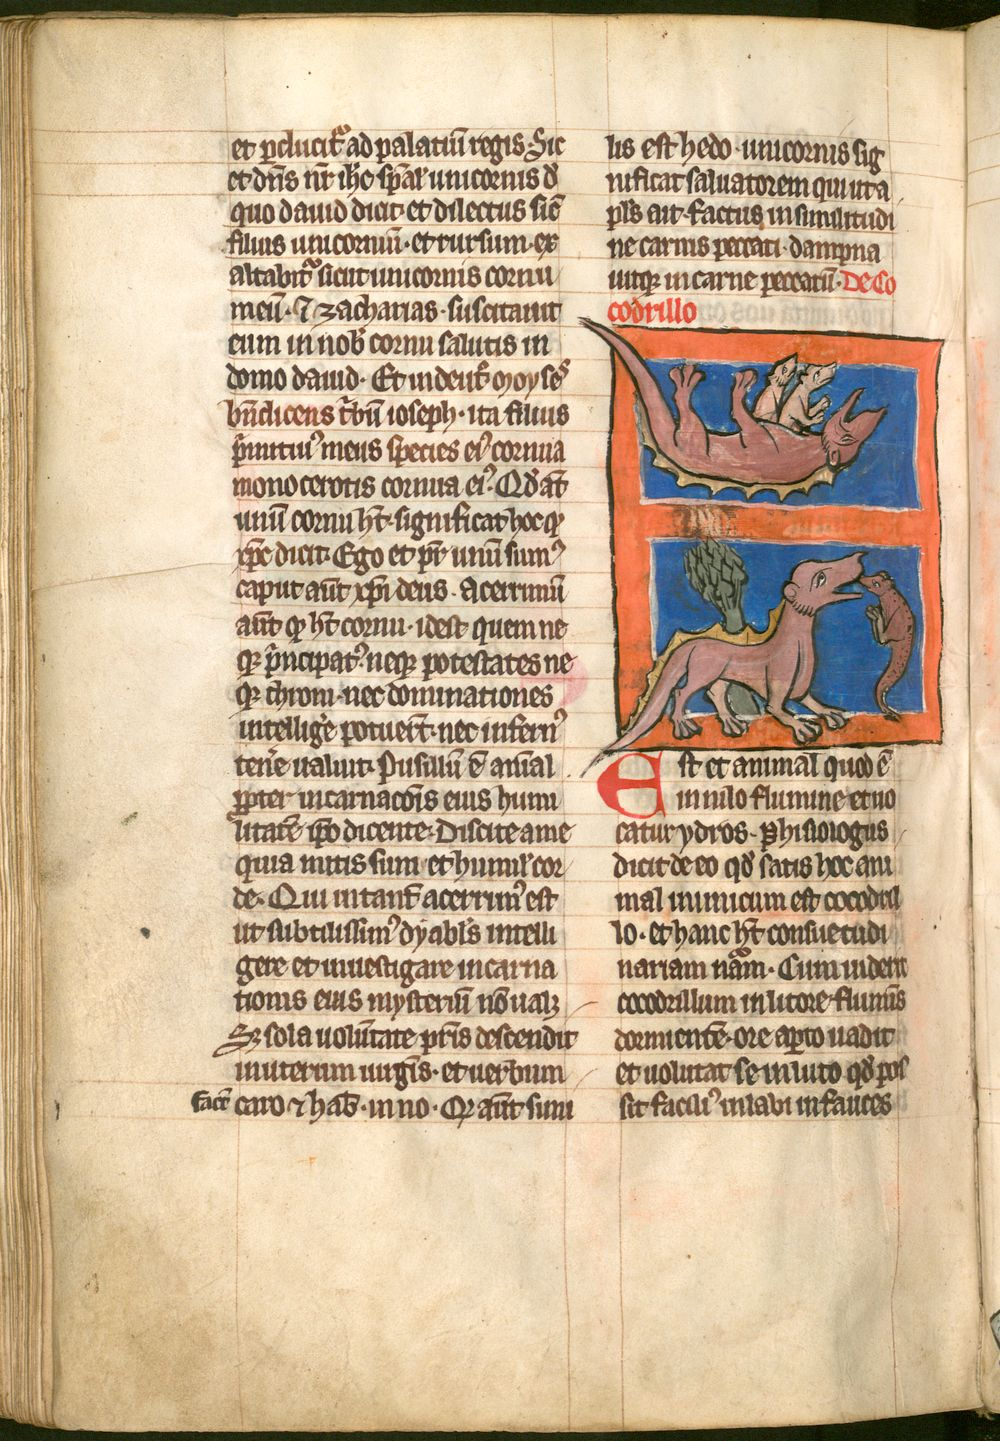 et ꝑducit᷑ ad palatiū regis· Sic
et dn̄s nr̄ ih̄c sp̄al' unicornis d'
quo dauid dicit· et dilectus sic̄
filius unicorniū· et rursum· ex
altabit᷑ sicut unicornis cornu
meū· ⁊ zacharias· suscitauit
cum in nob̄ cornu salutis in
domo dauid· Et in deut̄ moyses
bn̄dicens t'bū ioseph· ita filius
p'mitiu᷒ meus species ei᷒ cornua
monocerotis cornua ei᷒· Qd' aūt
unū cornu ht̄· significat hoc qđ
xp̄c dicit· Ego et pr̄ unū sum᷒
caput aūt xp̄i deus· Acerrimū
aūt qđ ht̄ cornu· idest quem ne
qꝫ p'ncipat᷒· neqꝫ potestates ne
qꝫ throni· nec dominationes
intellig'e potuer̄t· nec infern᷒
ten'e ualuit· Pusillū ē anīal
ꝓpter incarnac̄ois eius humi
litatē ip̄o dicente· Discite a me
quia mitis sum et humil' cor
de· Qui in tant̄ acerrim᷒ est
ut subtilissim᷒ dyabl's intelli
gere et inuestigare incarna
tionis eius mysteriū nō ualꝫ
Sꝫ sola uolūtate pr̄is descendit
in uterum uirḡis· et uerbum
factū caro ⁊ hab̄· in no· Qđ aūt simi
lis est hedo· unicornis sig
nificat saluatorem qui iuxta
apl's ait· factus in similitudi
ne carnis peccati· dampna
uitqꝫ in carne peccatū· De co
codrillo
Est et animal quod ē
in nilo flumine et uo
catur ydros· Phisiologus
dicit de eo qd' satis hoc ani
mal inimicum est cocodril
lo· et hanc ht̄ consuetudi
nariam nām· Cum uiderit
cocodrillum in litore flumīs
dormientē· ore apto uadit
et uolutat se in luto qd' pos
sit facili᷒ inlabi in fauces